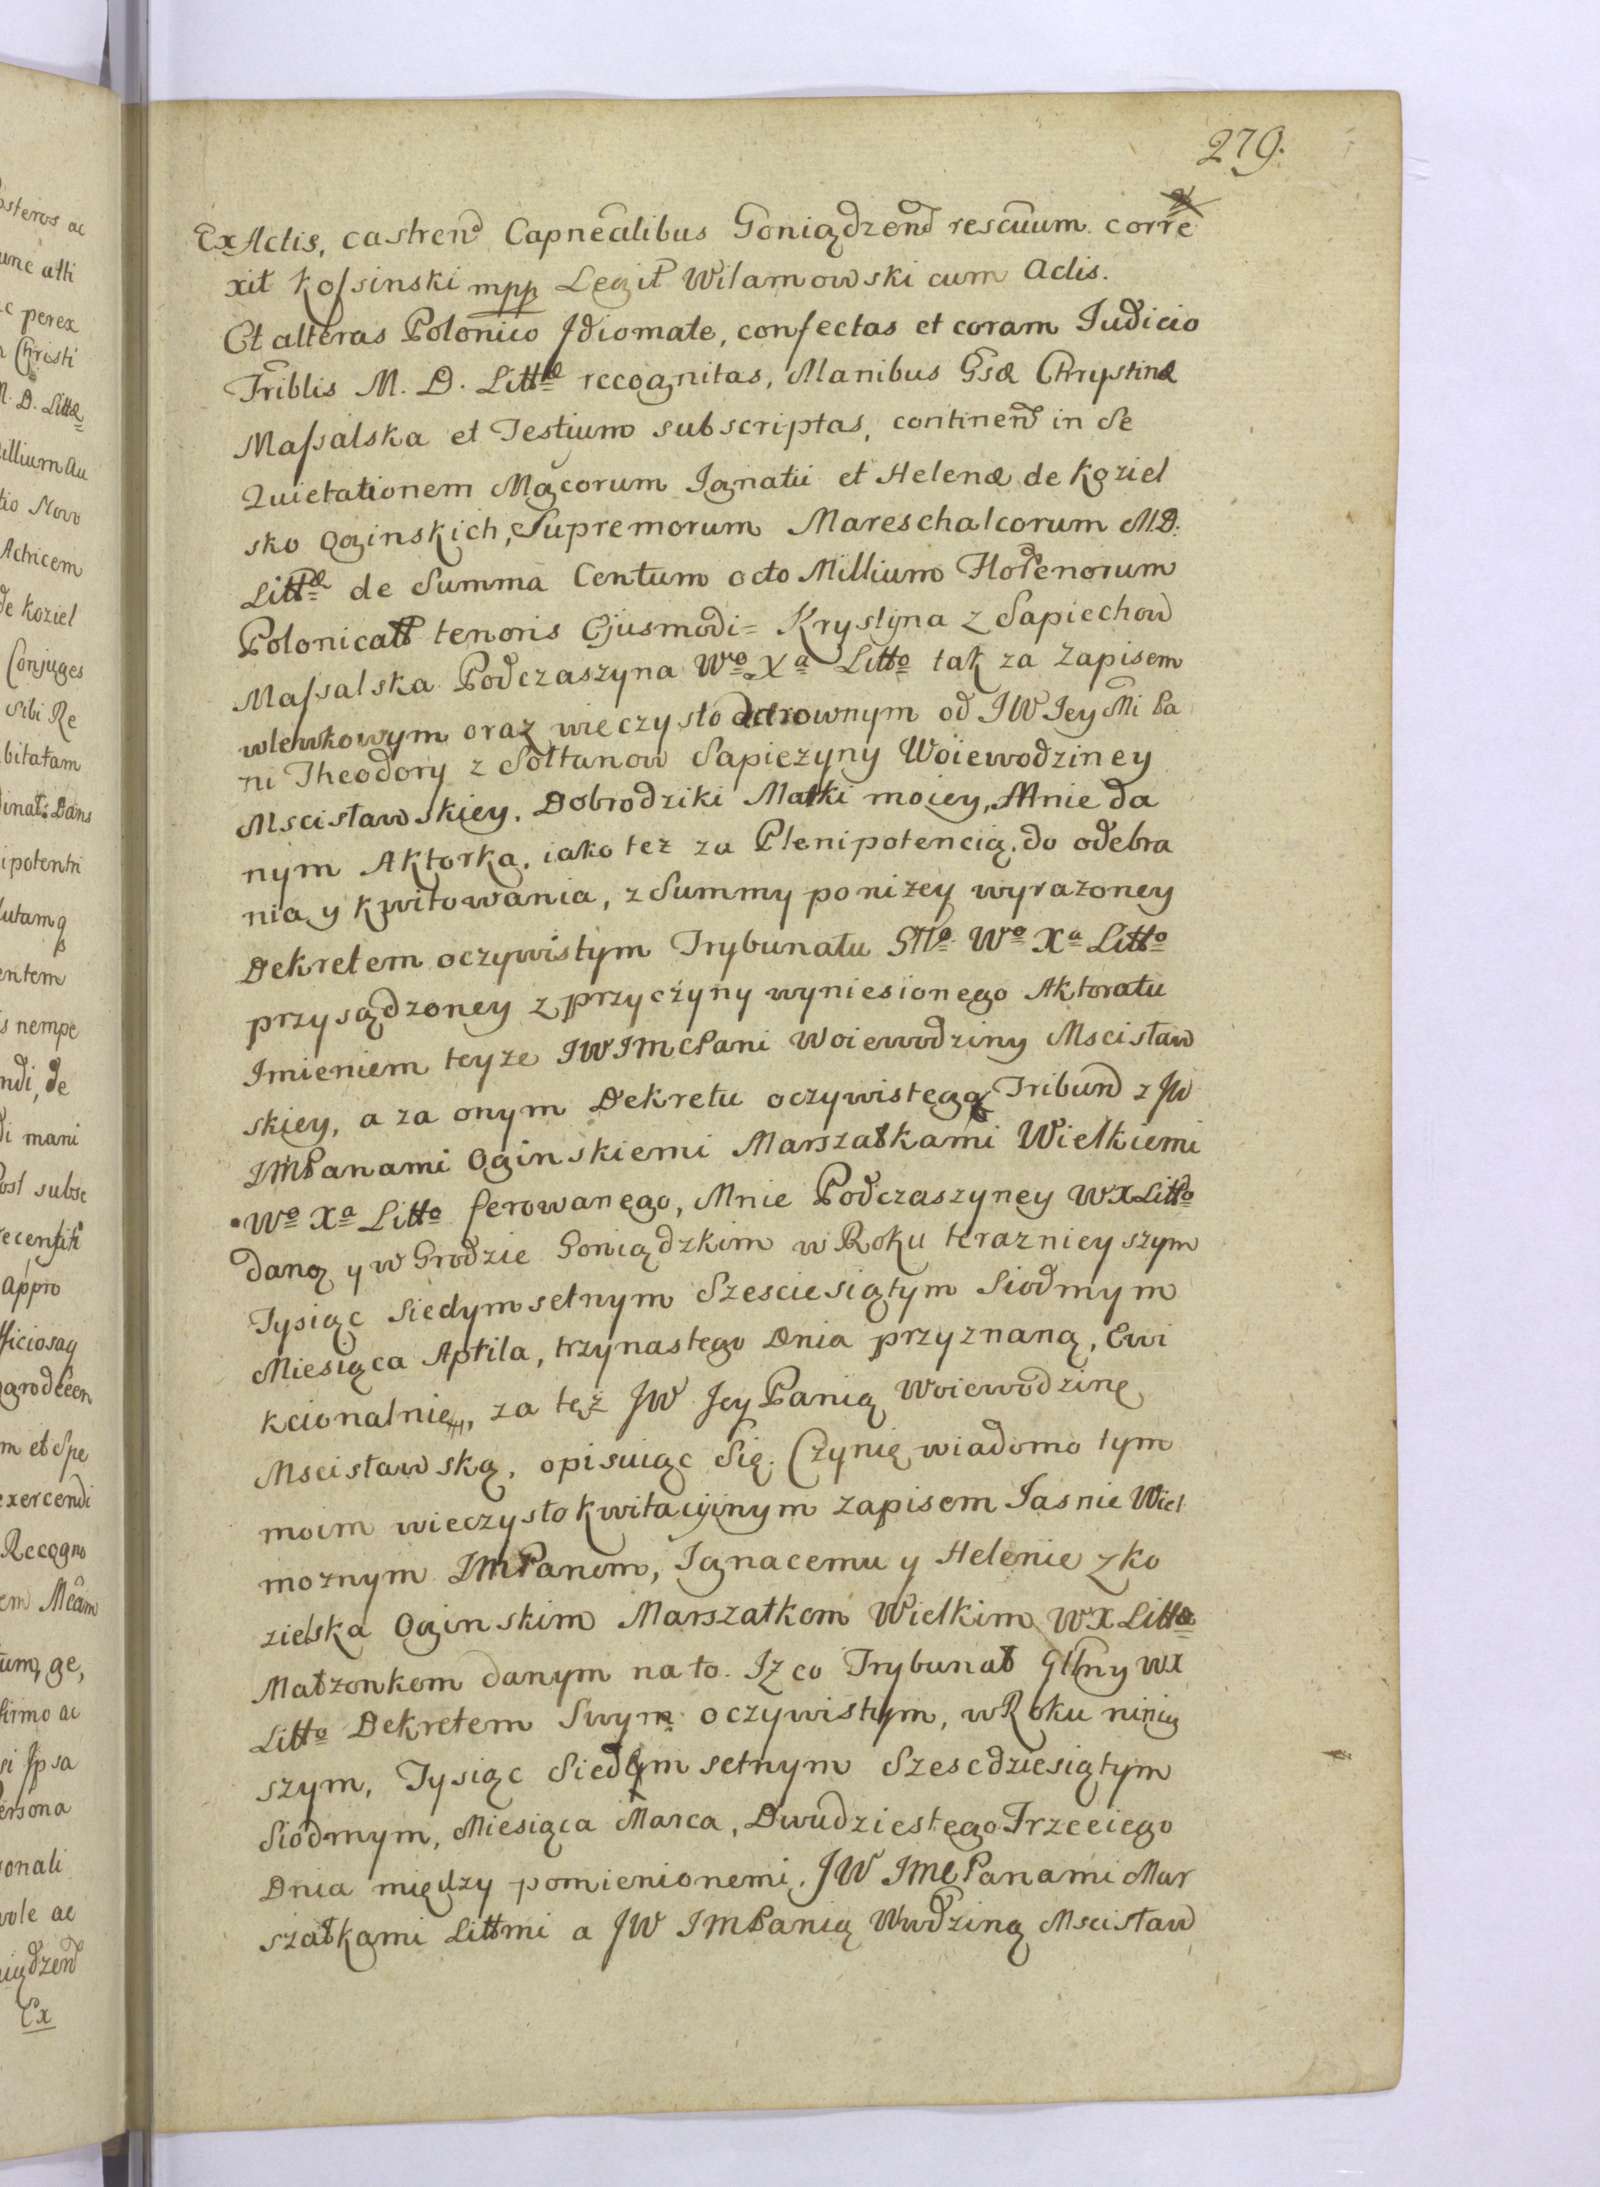 279.
Ex Actis, castrend Capnealibus Goniądzend rescuum corre
xit Kossinski mpp Legit Wilamowski cum Actis.
Et alteras Polonico Idiomate, confectas et coram Iudicio
Triblis M. D. Littæ recognitas, Manibus Gsæ Chrystinæ
Massalska et Testium subscriptas, continend in se
Quietationem Mgcorum Ignatii et Helenæ de Koziel
sko Oginskich, Supremorum Mareschalcorum M.D.
Littæ de Summa Centum octo Millium Florenorum
Polonical tenoris Ejusmodi = Krystyna z Sapiechow
Massalska Podczaszyna Wo Xa Litto tak za Zapisem
wlewkowym oraz wieczysto darownym od JW Jey Mi Pa
ni Theodory z Sołtanow Sapiezyny Woiewodziney
Mscisławskiey, Dobrodziki Matki moiey, Mnie da
nym Aktorka, iako tez za Plenipotencią, do odebra
nia y kwitowania, z Summy ponizey wyrazoney
Dekretem oczywistym Trybunału Głło Wo Xa Litto
przysądzoney z przyczyny wyniesionego Aktoratu
Imieniem teyze JWJMCPani Woiewodziny Mscisław
skiey, a za onym Dekretu oczywistego Tribund z JW
JMPanami Oginskiemi Marszałkami Wielkiemi
Wo Xa Litto ferowanego, Mnie Podczaszyney WX Litto
daną y w Grodzie Goniądzkim w Roku teraznieyszym
Tysiąc Siedymsetnym Szesciesiątym Siodmym
Miesiąca Aprila, trzynastego Dnia przyznaną, Ewi
kcionalnie, za też JW Jey Panią Woiewodzinę
Mscisławską, opisuiąc Się. Czynię wiadomo tym
moim wieczysto kwitacyinym zapisem Jasnie Wiel
moznym JMPanom, Ignacemu y Helenie z Ko
zielska Oginskim Marszałkom Wielkim WX Litto
Małzonkom danym na to. Iz co Trybunał Głłny WX
Litto Dekretem Swym oczywistym, w Roku niniey
szym, Tysiąc Siedymsetnym Szescdziesiątym
Siodmym, Miesiąca Marca, Dwudziestego Trzeciego
Dnia między pomienionemi, JW JMCPanami Mar
szałkami Littmi a JW JMPanią Wwdziną Mscisław